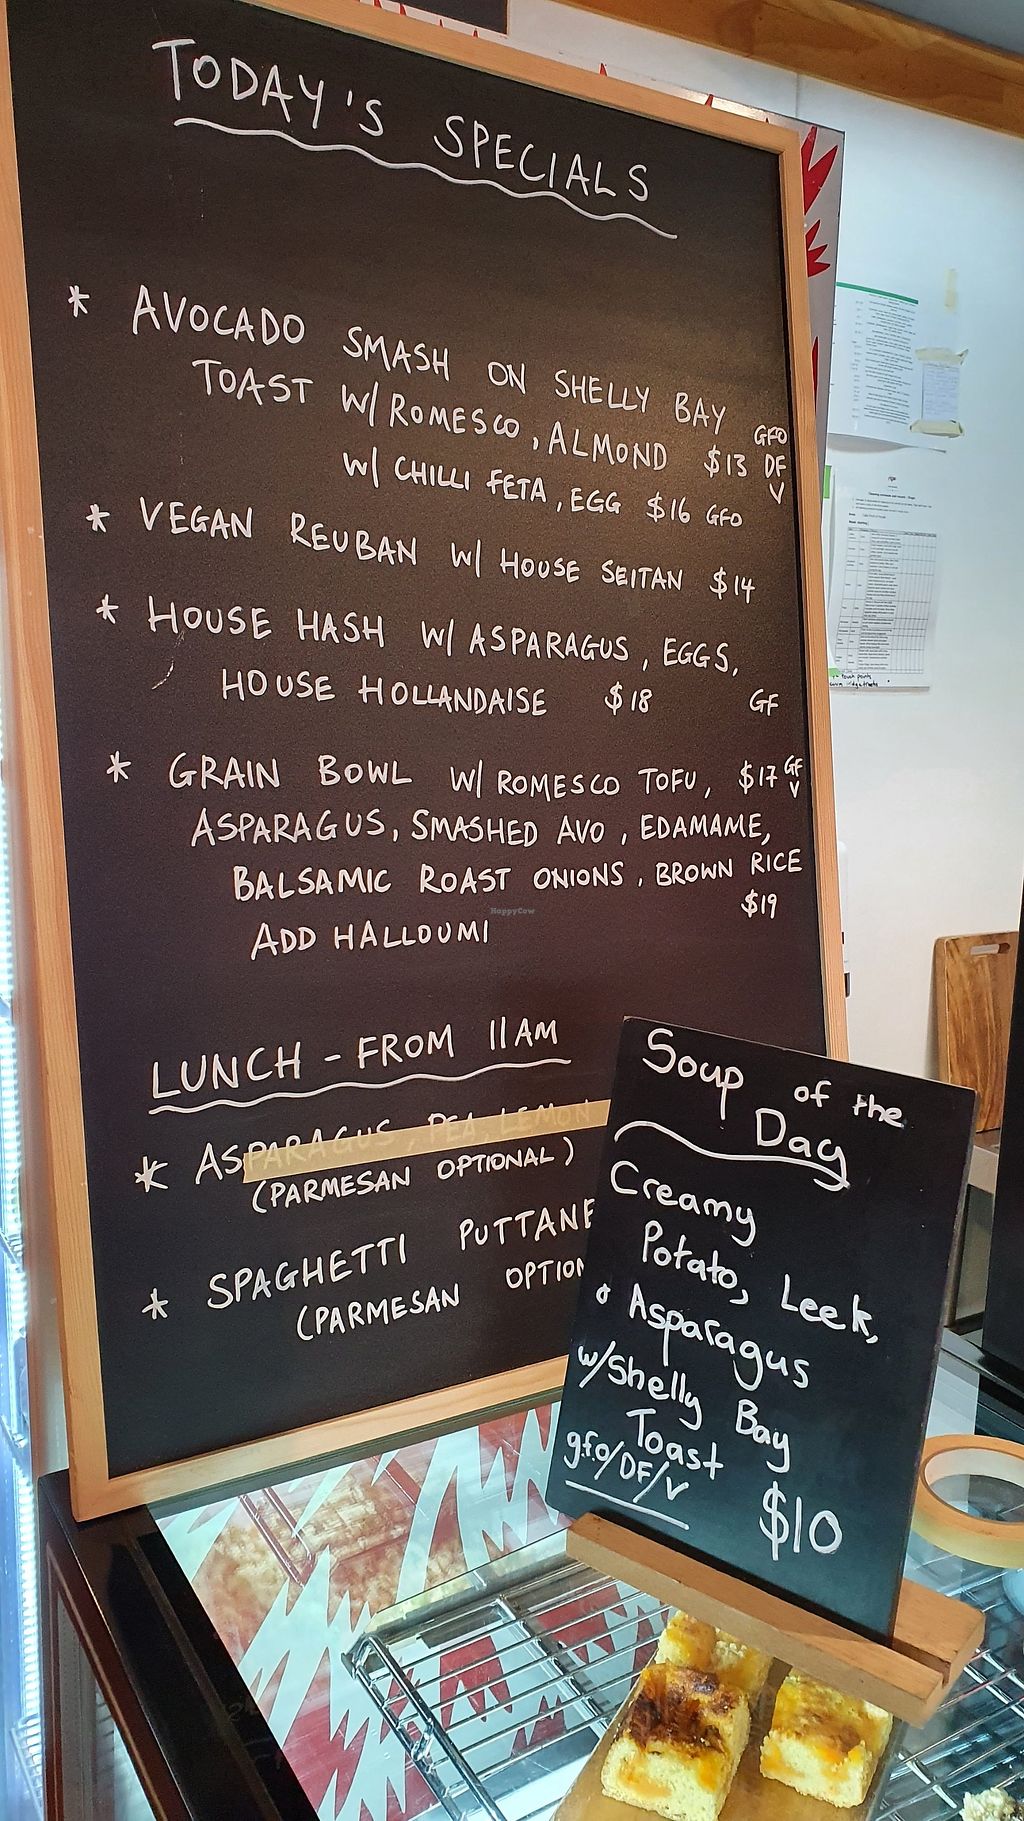 TODAY'S SPECIALS
* AVOCADO SMASH ON SHELLY BAY
TOAST W/ ROMESCO, ALMOND $13 GFO DF V
W/ CHILLI FETA, EGG $16 GFO
* VEGAN REUBAN W/ HOUSE SEITAN $14
* HOUSE HASH W/ ASPARAGUS, EGGS,
HOUSE HOLLANDAISE $18 GF
* GRAIN BOWL W/ ROMESCO TOFU, $17 GF V
ASPARAGUS, SMASHED AVO, EDAMAME,
BALSAMIC ROAST ONIONS, BROWN RICE
ADD HALLOUMI $19
HappyCow
LUNCH - FROM 11AM
* ASPARAGUS, PEA, LEMON
(PARMESAN OPTIONAL)
* SPAGHETTI PUTTANE
(PARMESAN OPTION
Soup of the
Day
Creamy
Potato, Leek,
& Asparagus
w/Shelly Bay
Toast
g.f.o/DF/V $10